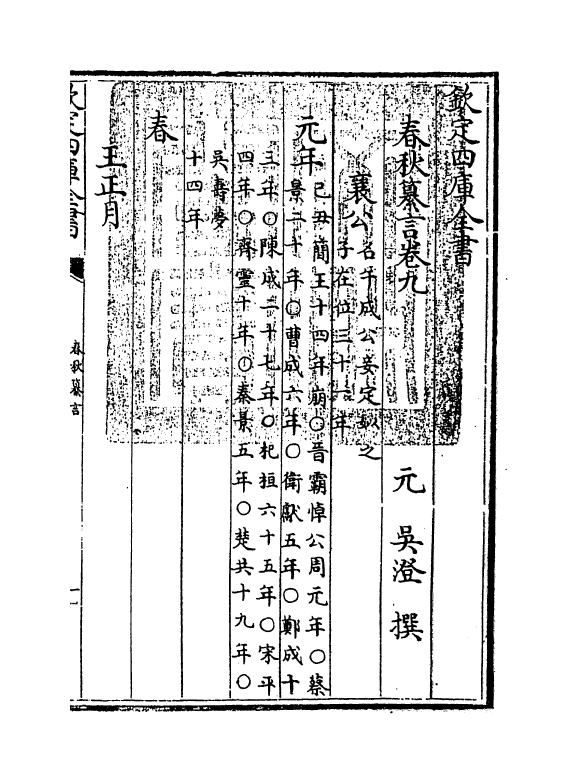 欽定四庫全書
春秋纂言卷九
元 吳澄 撰
襄公 名午成公妾定姒之
子在位三十 年
元年 己丑簡王十四年崩○晉霸悼公周元年○蔡
景二十年○曹成六年○衛獻五年○鄭成十
三年○陳成二十七年○杞桓六十五年○宋平
四年○齊靈十年○秦景五年○楚共十九年○
吳壽夢
十四年
春
王正月
欽定四庫全書
春秋纂言
一